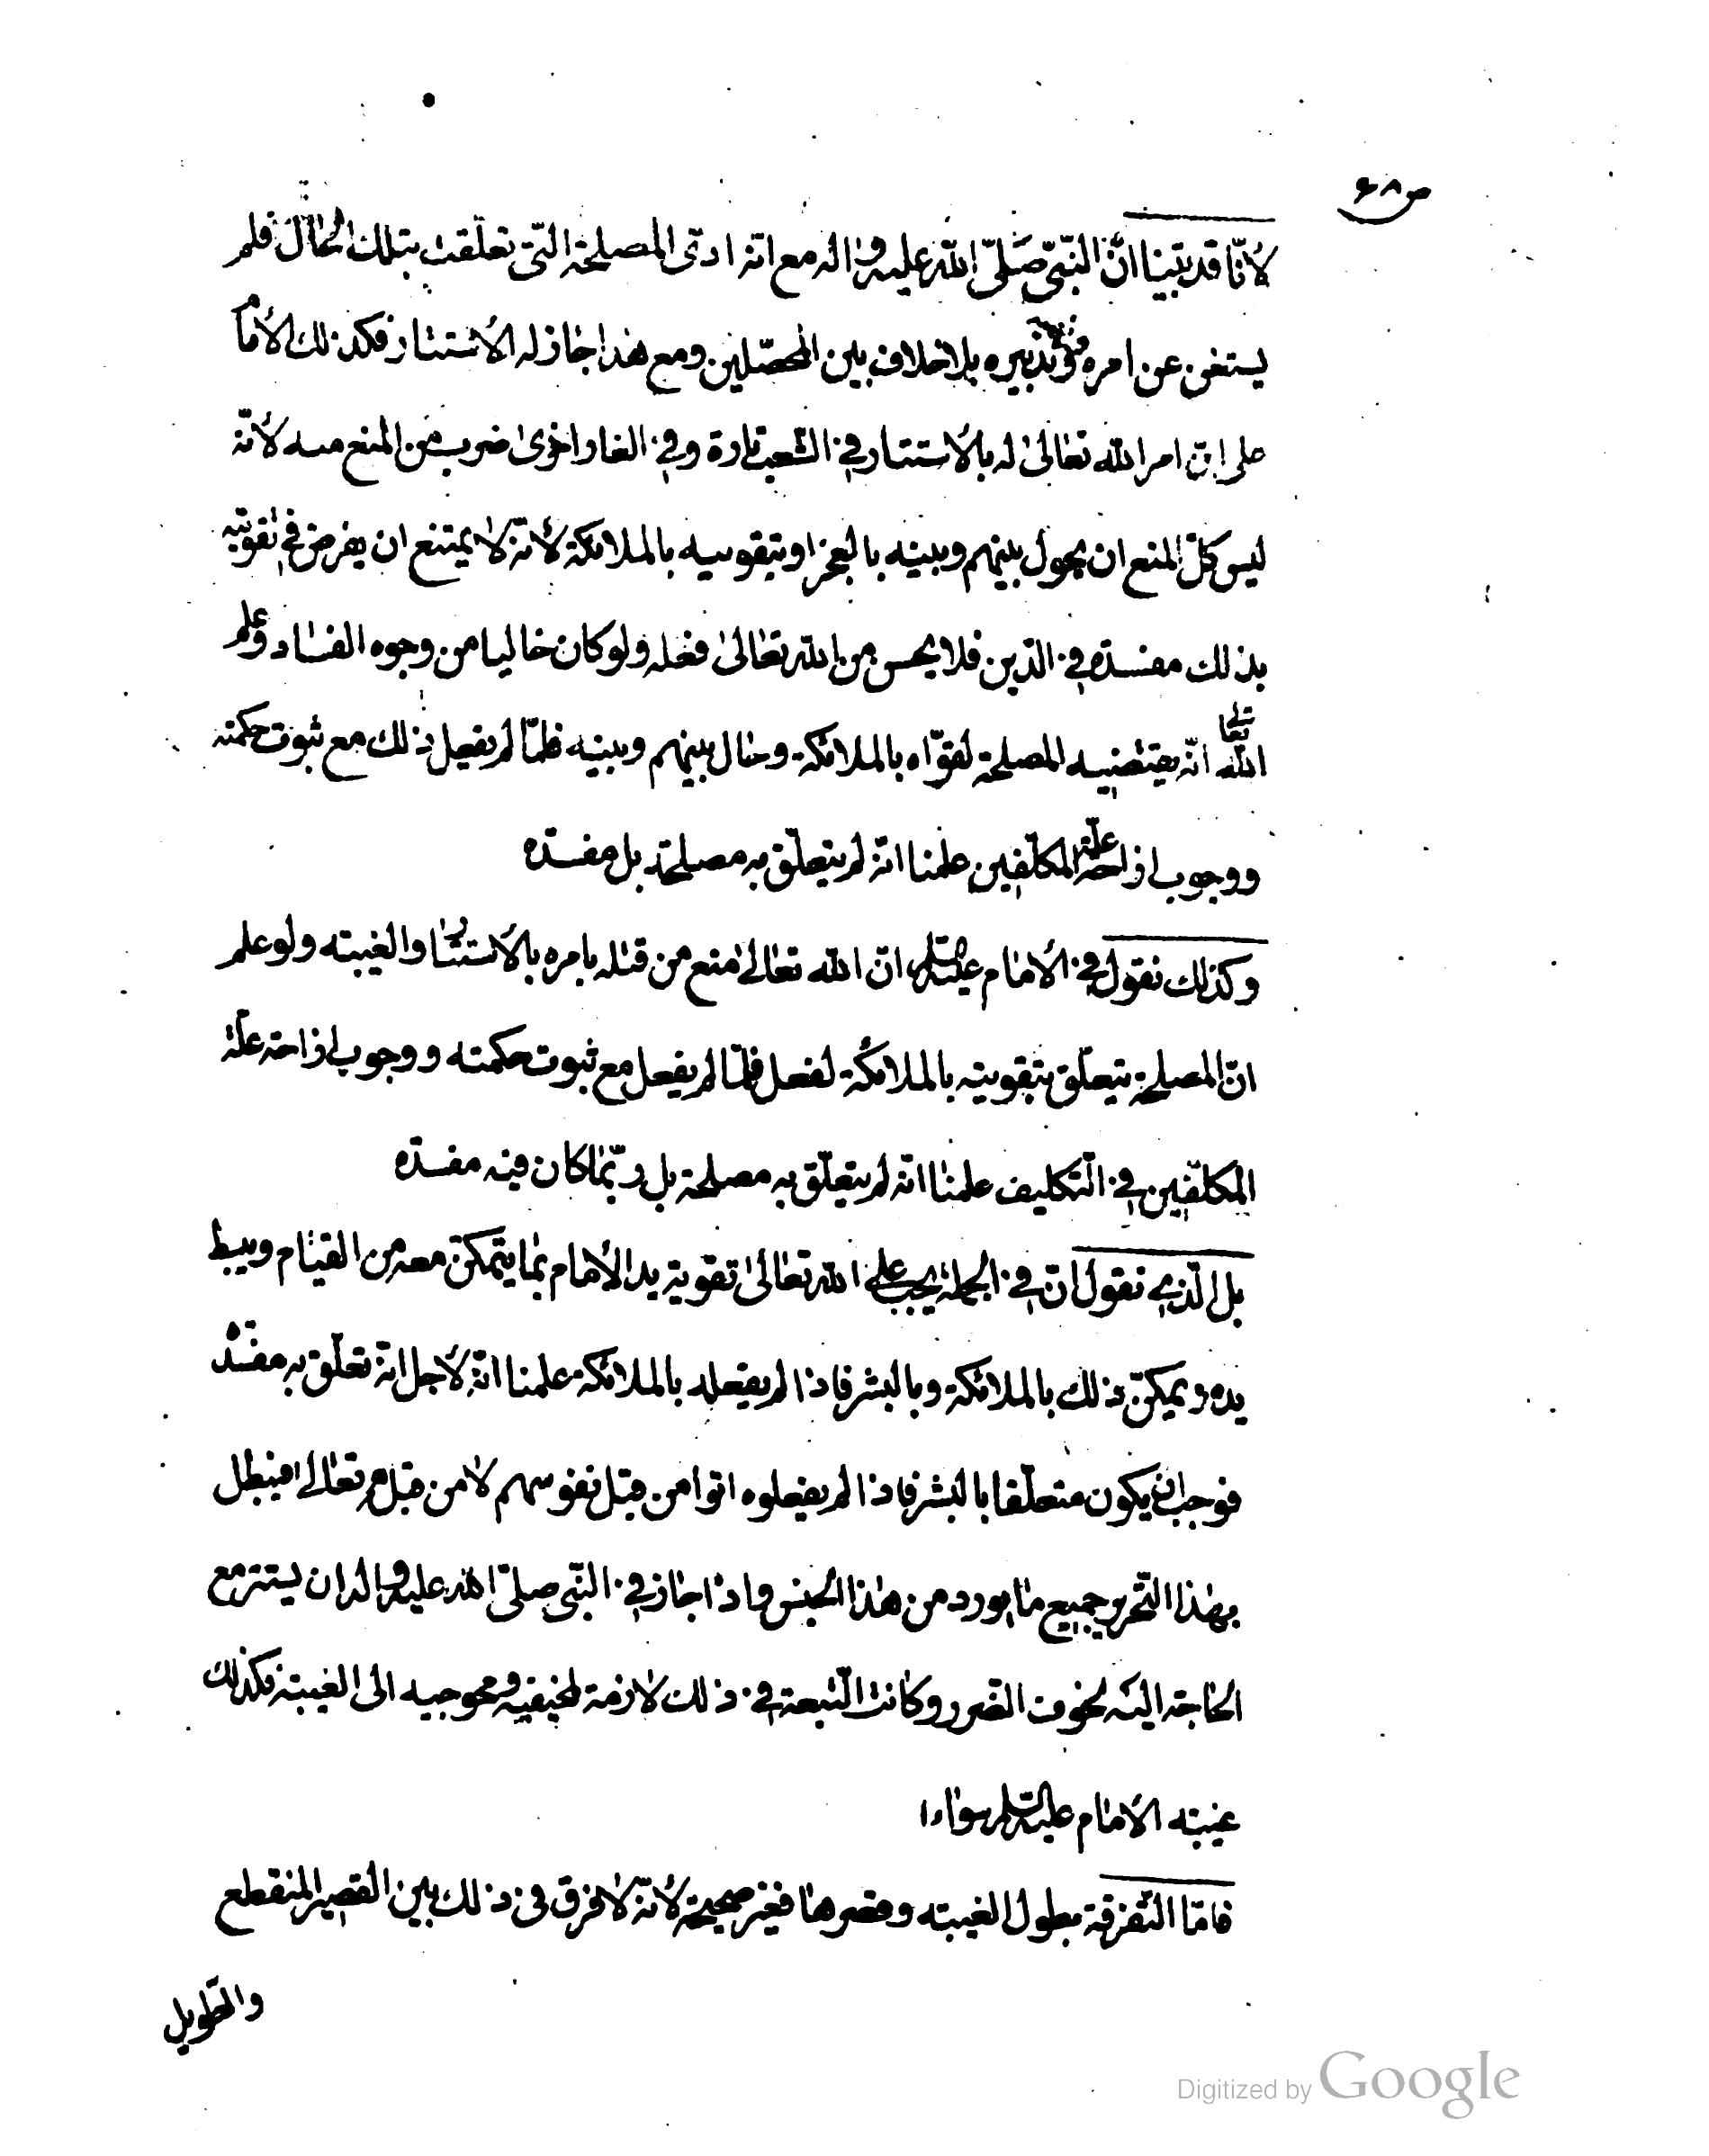 ص ۶۸
لأنّا قد بيّنا انّ النّبىّ صلّى اللّه عليه واله مع انّه ادّى المصلحة الّتى تعلّقت بتلك الحال فلم
يستغن عن امره ونهيه وتدبيره بلا خلاف بين المحصّلين ومع هذا جاز له الاستتار فكذلك الأمام
على انّ امر الله تعالىٰ له بالأستتار في الشّعب تارة وفي الغار اخرىٰ ضرب من المنع منه لأنّه
ليس كلّ المنع ان يحول بينهم وبينه بالعجز او بتقويته بالملائكة لأنّه لا يمتنع ان يفرض في تقويته
بذلك مفسدة في الدّين فلا يحسن من اللّه تعالىٰ فعله ولو كان خاليا من وجوه الفساد وعلم
الله تعالى انّه يقتضيه المصلحة لقوّاه بالملائكة وحال بينهم وبينه فلمّا لم يفعل ذلك مع ثبوت حكمته
ووجوب ازاحة علّة المكلّفين علمنا انّه لم يتعلّق به مصلحة بل مفسدة
وكذلك نقول في الأمام عليه السّلم انّ الله تعالىٰ منع من قتله بامره بالأستتار والغيبته ولو علم
انّ المصلحة يتعلّق بتقويته بالملائكة لفعل فلمّا لم يفعل مع ثبوت حكمته ووجوب ازاحة علّة
المكلّفين في التّكليف علمنا انّه لم يتعلّق به مصلحة بل ربّما كان فيه مفسدة
بل الّذي نقول انّ في الجملة يجب على اللّه تعالىٰ تقوية يد الأمام بما يتمكّن معه من القيام ويبسط
يده ويمكّن ذلك بالملائكة وبالبشر فاذا لم يفعله بالملائكة علمنا انّه لأجل انّه تعلّق به مفسدة
فوجب ان يكون متعلّقا بالبشر فاذا لم يفعلوه اتوا من قبل نفوسهم لا من قبله تعالى فيبطل
بهذا التّحرير جميع ما يورد من هذا الجنس واذا جاز في النّبى صلّى الله عليه واله ان يستتر مع
الحاجة اليه لخوف الضّرر وكانت التّبعة في ذلك لازمة لمخيفيه ومحوجيه الى الغيبة فكذلك
غيبته الأمام عليه السّلم سواءا
فامّا التّفرقة بطول الغيبته وقصرها فغير صحيحة لأنّه لا فرق في ذلك بين القصير المنقطع
والطّويل
Digitized by Google